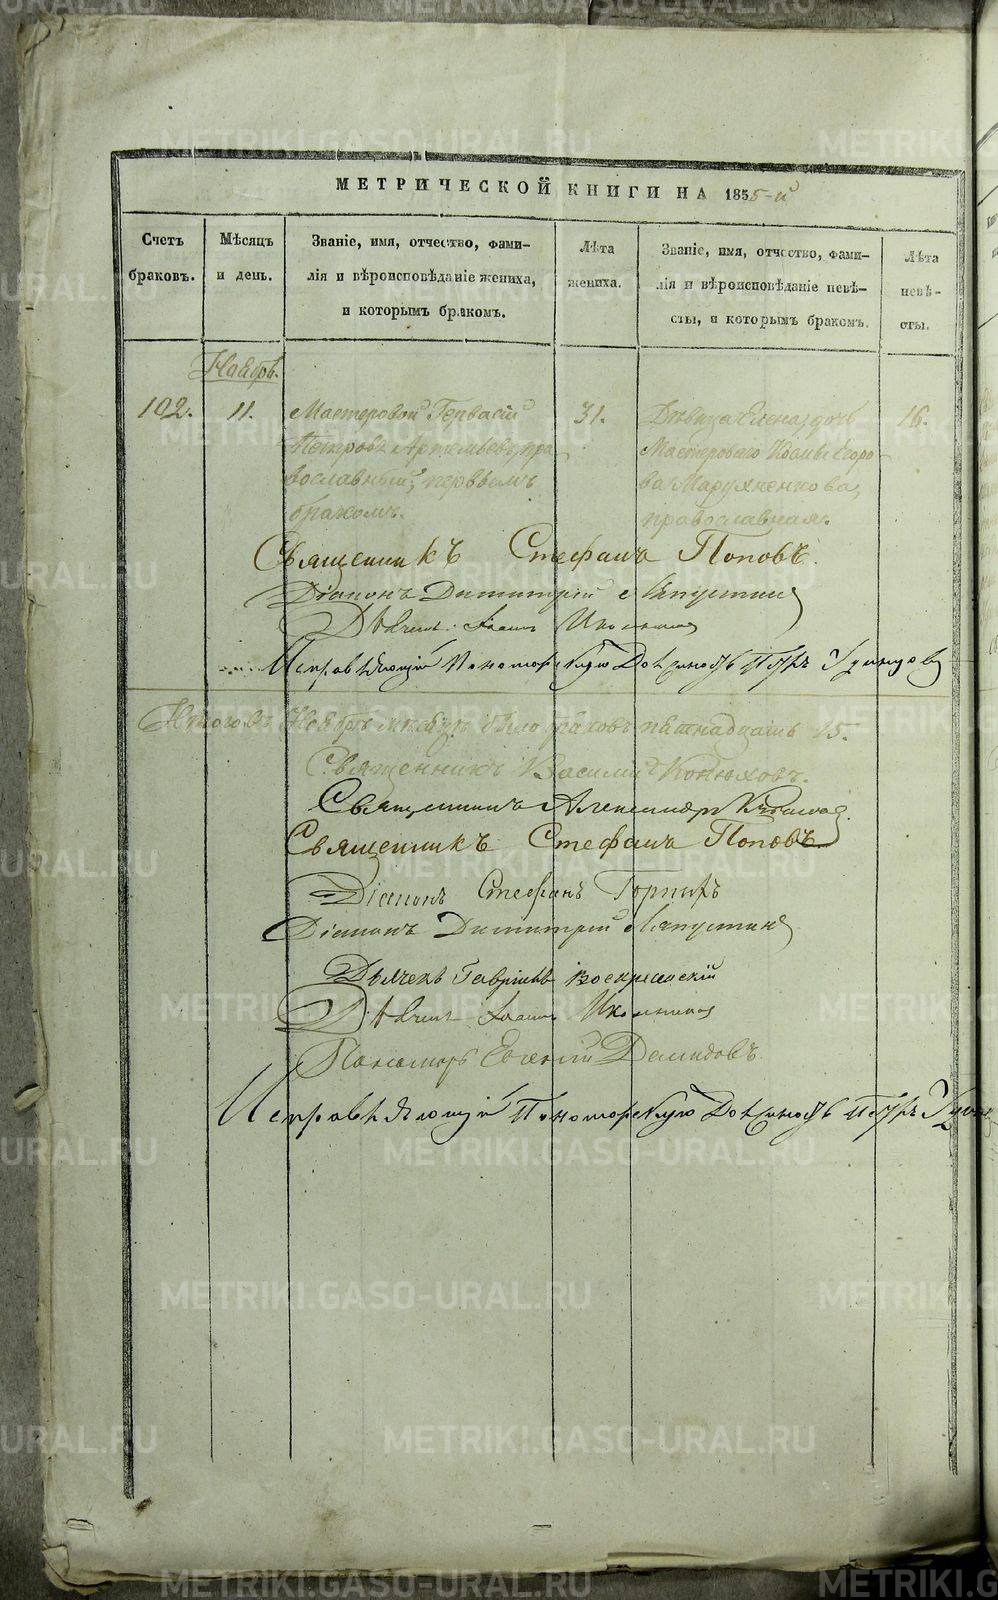 МЕТРИЧЕСКОЙ КНИГИ НА 1855-й
Счетъ браковъ.
Мѣсяцъ и день.
Званіе, имя, отчество, фами-
лія и вѣроисповѣданіе жениха,
и которымъ бракомъ.
Лѣта жениха.
Званіе, имя, отчество, фами-
лія и вѣроисповѣданіе невѣ-
сты, и которымъ бракомъ.
Лѣта невѣ-
сты.
Ноябрь.
102.
11.
Мастеровой Гервасій
Петровъ Артемьевъ, пра
вославный, первымъ
бракомъ.
31.
Дѣвица Елена, дочь
Мастероваго Козмы Егоро
ва Марухненкова,
православная.
16.
Священникъ Стефанъ Поповъ.
Діаконъ Димитрій Ляпустинъ
Дьячекъ Іоаннъ
Исправляющій Пономорскую Должность Петръ
Итого въ Ноябрѣ мѣсяцѣ было браковъ пятнадцать 15.
Священникъ Василій Конюховъ.
Священникъ Александръ
Священникъ Стефанъ Поповъ
Діаконъ Стефанъ
Діаконъ Димитрій Ляпустинъ
Дьячекъ Гавріилъ Воскресенскій
Дьячекъ Іоаннъ
Пономарь Евгеній Демидовъ.
Исправляющій Пономорскую Должность Петръ
METRIKI.GASO-URAL.RU